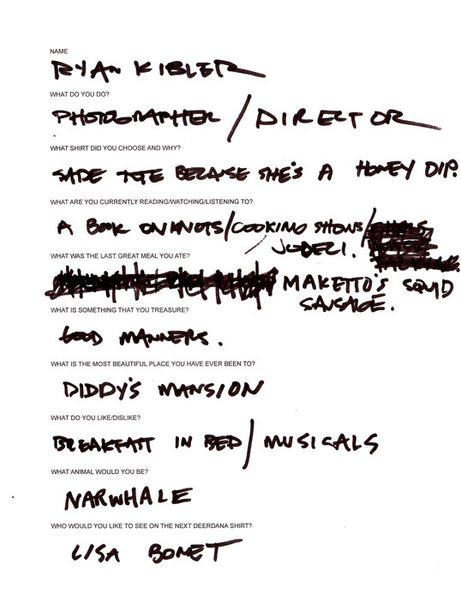 NAME
RYAN KIBLER
WHAT DO YOU DO?
PHOTOGRAPHER / DIRECTOR
WHAT SHIRT DID YOU CHOOSE AND WHY?
SADE TOTE BECAUSE SHE'S A HONEY DIP.
WHAT ARE YOU CURRENTLY READING/WATCHING/LISTENING TO?
A BOOK ON KNOTS/COOKING SHOWS/
JODECI.
WHAT WAS THE LAST GREAT MEAL YOU ATE?
MAKETTO'S SQUID
SAUSAGE.
WHAT IS SOMETHING THAT YOU TREASURE?
GOOD MANNERS.
WHAT IS THE MOST BEAUTIFUL PLACE YOU HAVE EVER BEEN TO?
DIDDY'S MANSION
WHAT DO YOU LIKE/DISLIKE?
BREAKFAST IN BED/MUSICALS
WHAT ANIMAL WOULD YOU BE?
NARWHALE
WHO WOULD YOU LIKE TO SEE ON THE NEXT DEERDANA SHIRT?
LISA BONET